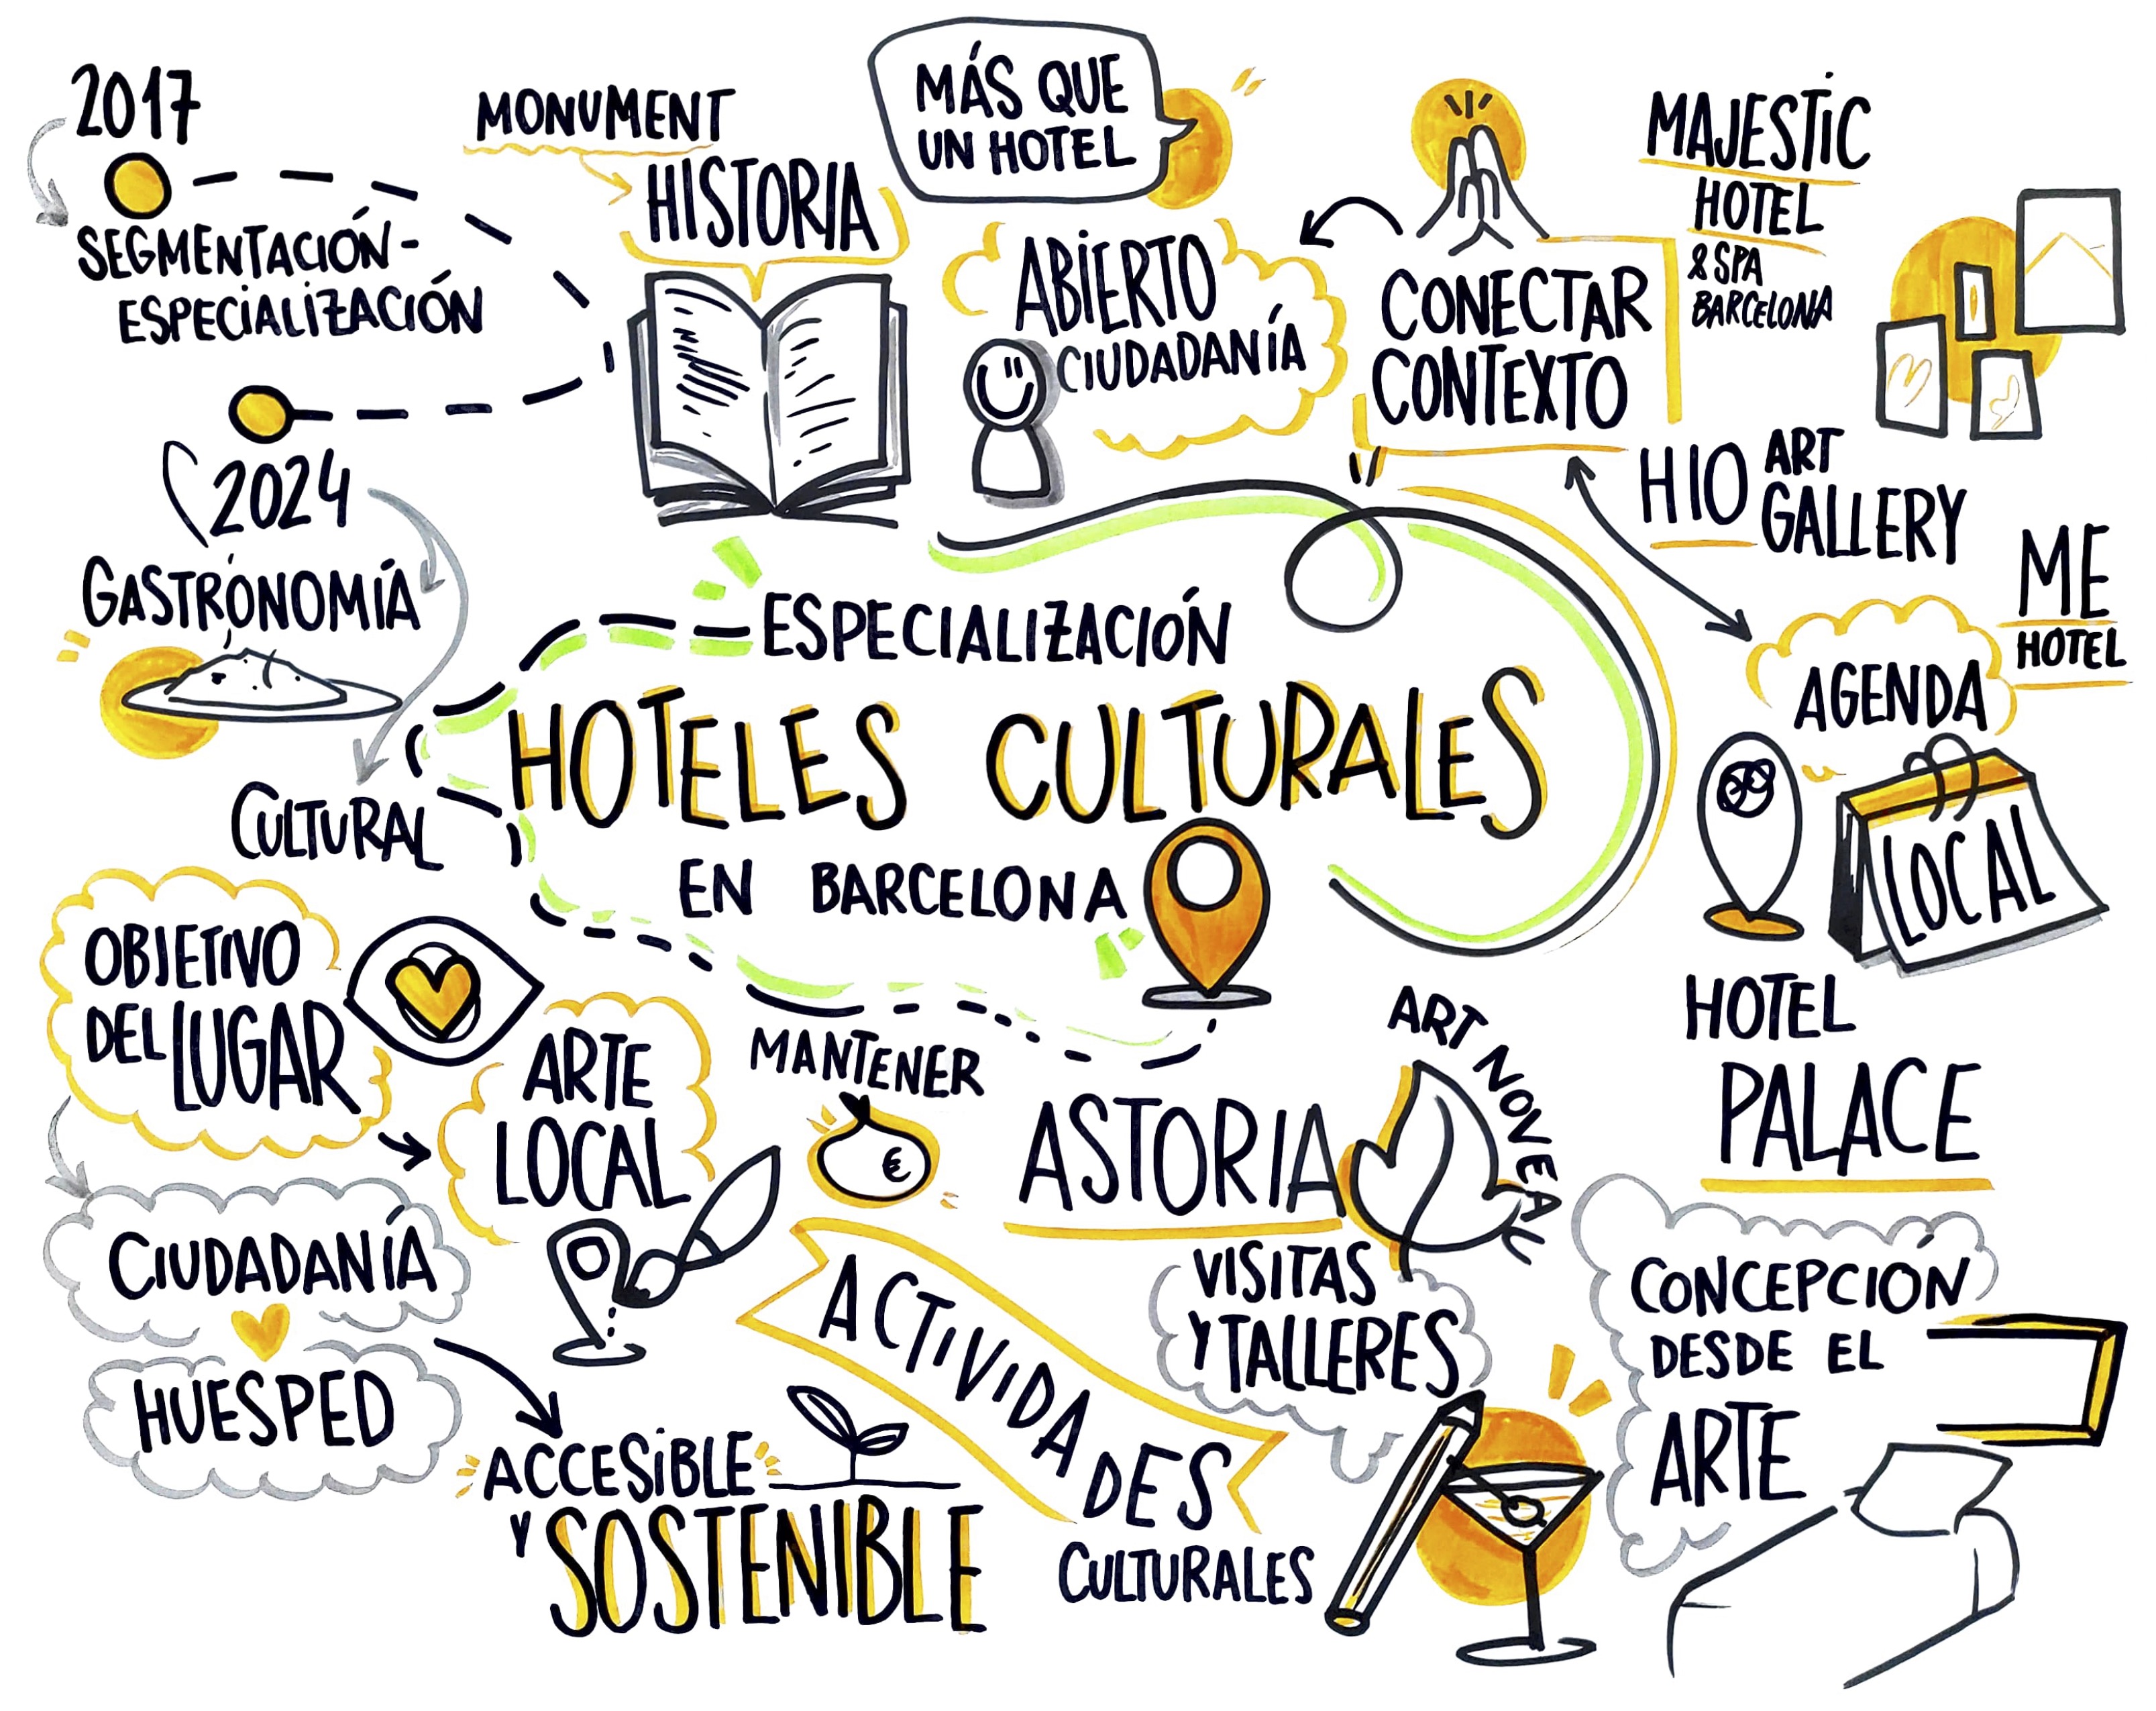 2017
SEGMENTACIÓN-
ESPECIALIZACIÓN
2024
GASTRÓNOMÍA
CULTURAL
MONUMENT
HISTORIA
MÁS QUE
UN HOTEL
ABIERTO
CIUDADANÍA
CONECTAR
CONTEXTO
MAJESTIC
HOTEL
& SPA
BARCELONA
H10 ART
GALLERY
ME
HOTEL
AGENDA
LOCAL
ESPECIALIZACIÓN
HOTELES CULTURALES
EN BARCELONA
OBJETIVO
DEL LUGAR
CIUDADANÍA
HUESPED
ARTE
LOCAL
ACCESIBLE
Y SOSTENIBLE
MANTENER
€
ACTIVIDADES
CULTURALES
ASTORIA
ART NOVEAU
VISITAS
Y TALLERES
HOTEL
PALACE
CONCEPCIÓN
DESDE EL
ARTE